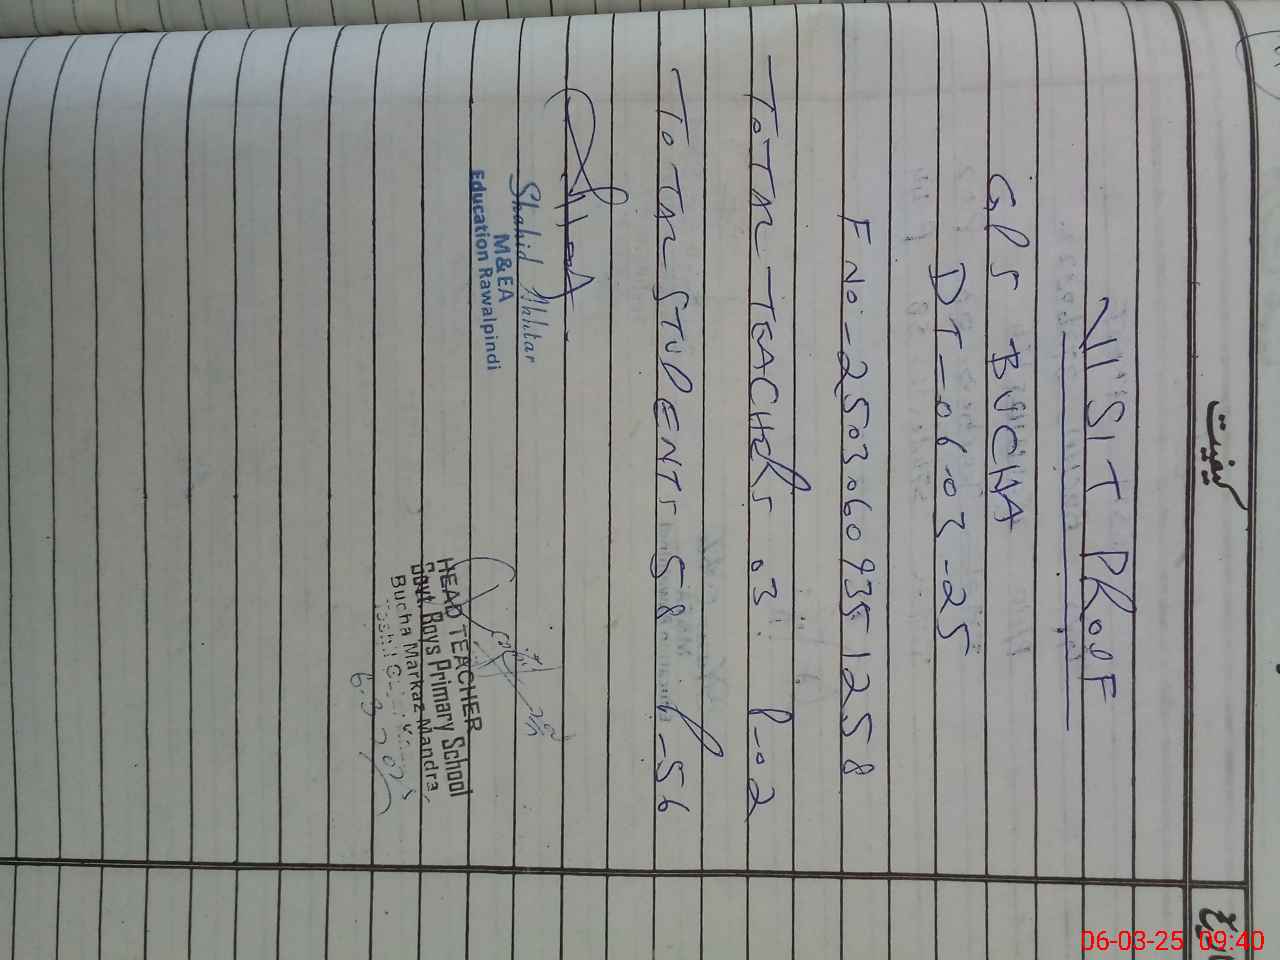 کیفیت
VISIT PROOF
GPS BUCHA
DT-06-03-25
F No-25030609351258
TOTAL TEACHERS 03 P-02
TOTAL STUDENTS 58 P-56
Shahid Akhtar
M&EA
Education Rawalpindi
HEAD TEACHER
Govt. Boys Primary School
Bucha Markaz Mandra,
6-3-2025
06-03-25 09:40